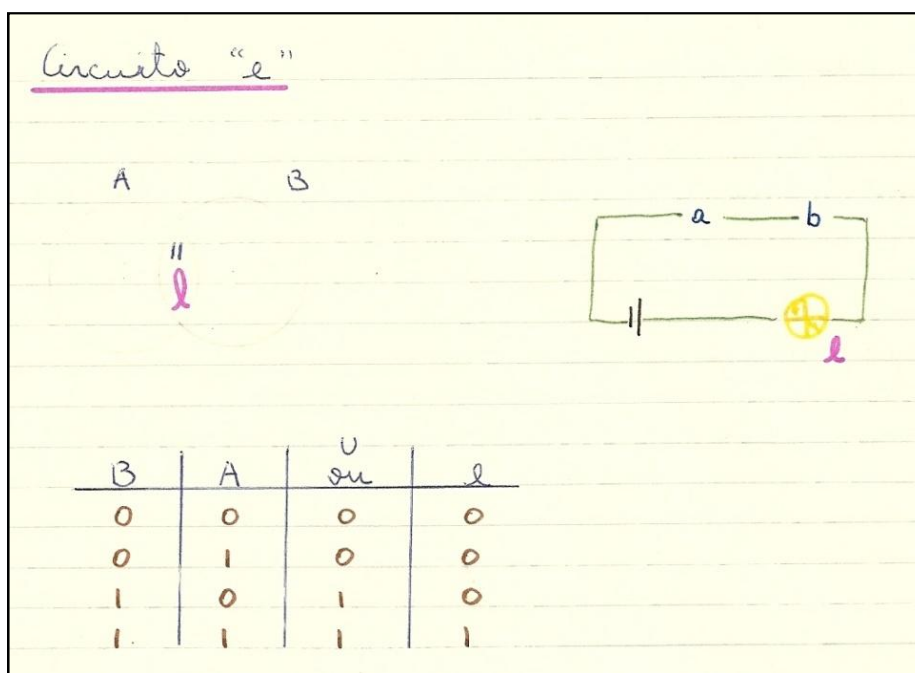 Circuito "e"
A B
a b
"
l
l
B A U ou l
0 0 0 0
0 1 0 0
1 0 1 0
1 1 1 1